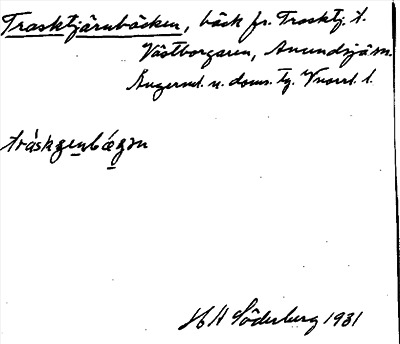 Trasktjärnbäcken, bäck fr. Trosktj. t.
Västborgaren, Anundsjö sn.
Ångerml. n. doms. tg. Vnorrl. l.
tráskgenbǽgən
H H Söderberg 1931